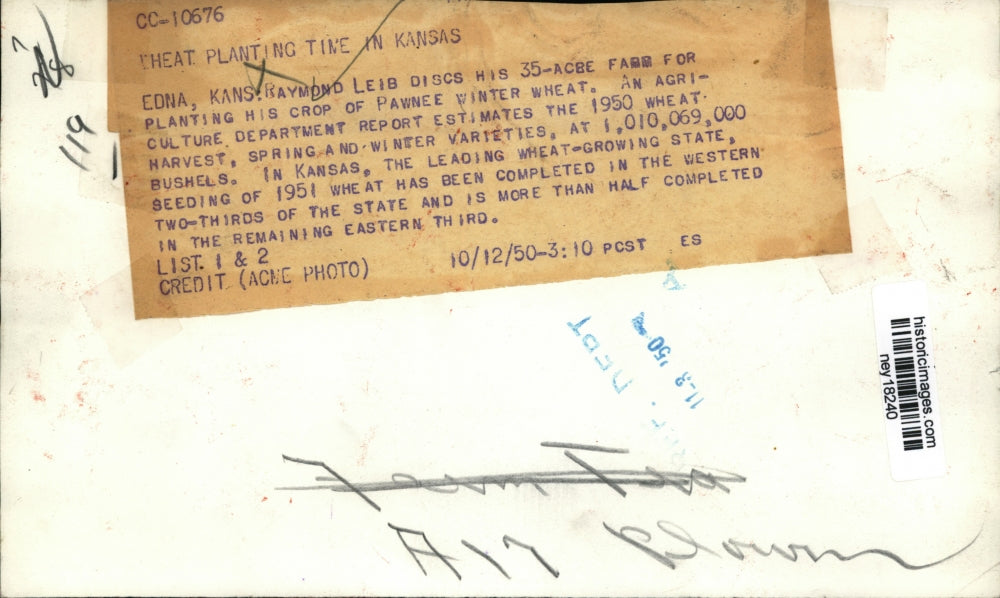 CC-10676
WHEAT PLANTING TIME IN KANSAS
EDNA, KANS. RAYMOND LEIB DISCS HIS 35-ACRE FARM FOR
PLANTING HIS CROP OF PAWNEE WINTER WHEAT. AN AGRI-
CULTURE DEPARTMENT REPORT ESTIMATES THE 1950 WHEAT
HARVEST, SPRING AND WINTER VARIETIES, AT 1,010,069,000
BUSHELS. IN KANSAS, THE LEADING WHEAT-GROWING STATE,
SEEDING OF 1951 WHEAT HAS BEEN COMPLETED IN THE WESTERN
TWO-THIRDS OF THE STATE AND IS MORE THAN HALF COMPLETED
IN THE REMAINING EASTERN THIRD.
LIST. 1 & 2
CREDIT (ACME PHOTO) 10/12/50-3:10 PCST ES
119
DEPT
11-3 '50
historicimages.com
ney18240
A17 Plowm